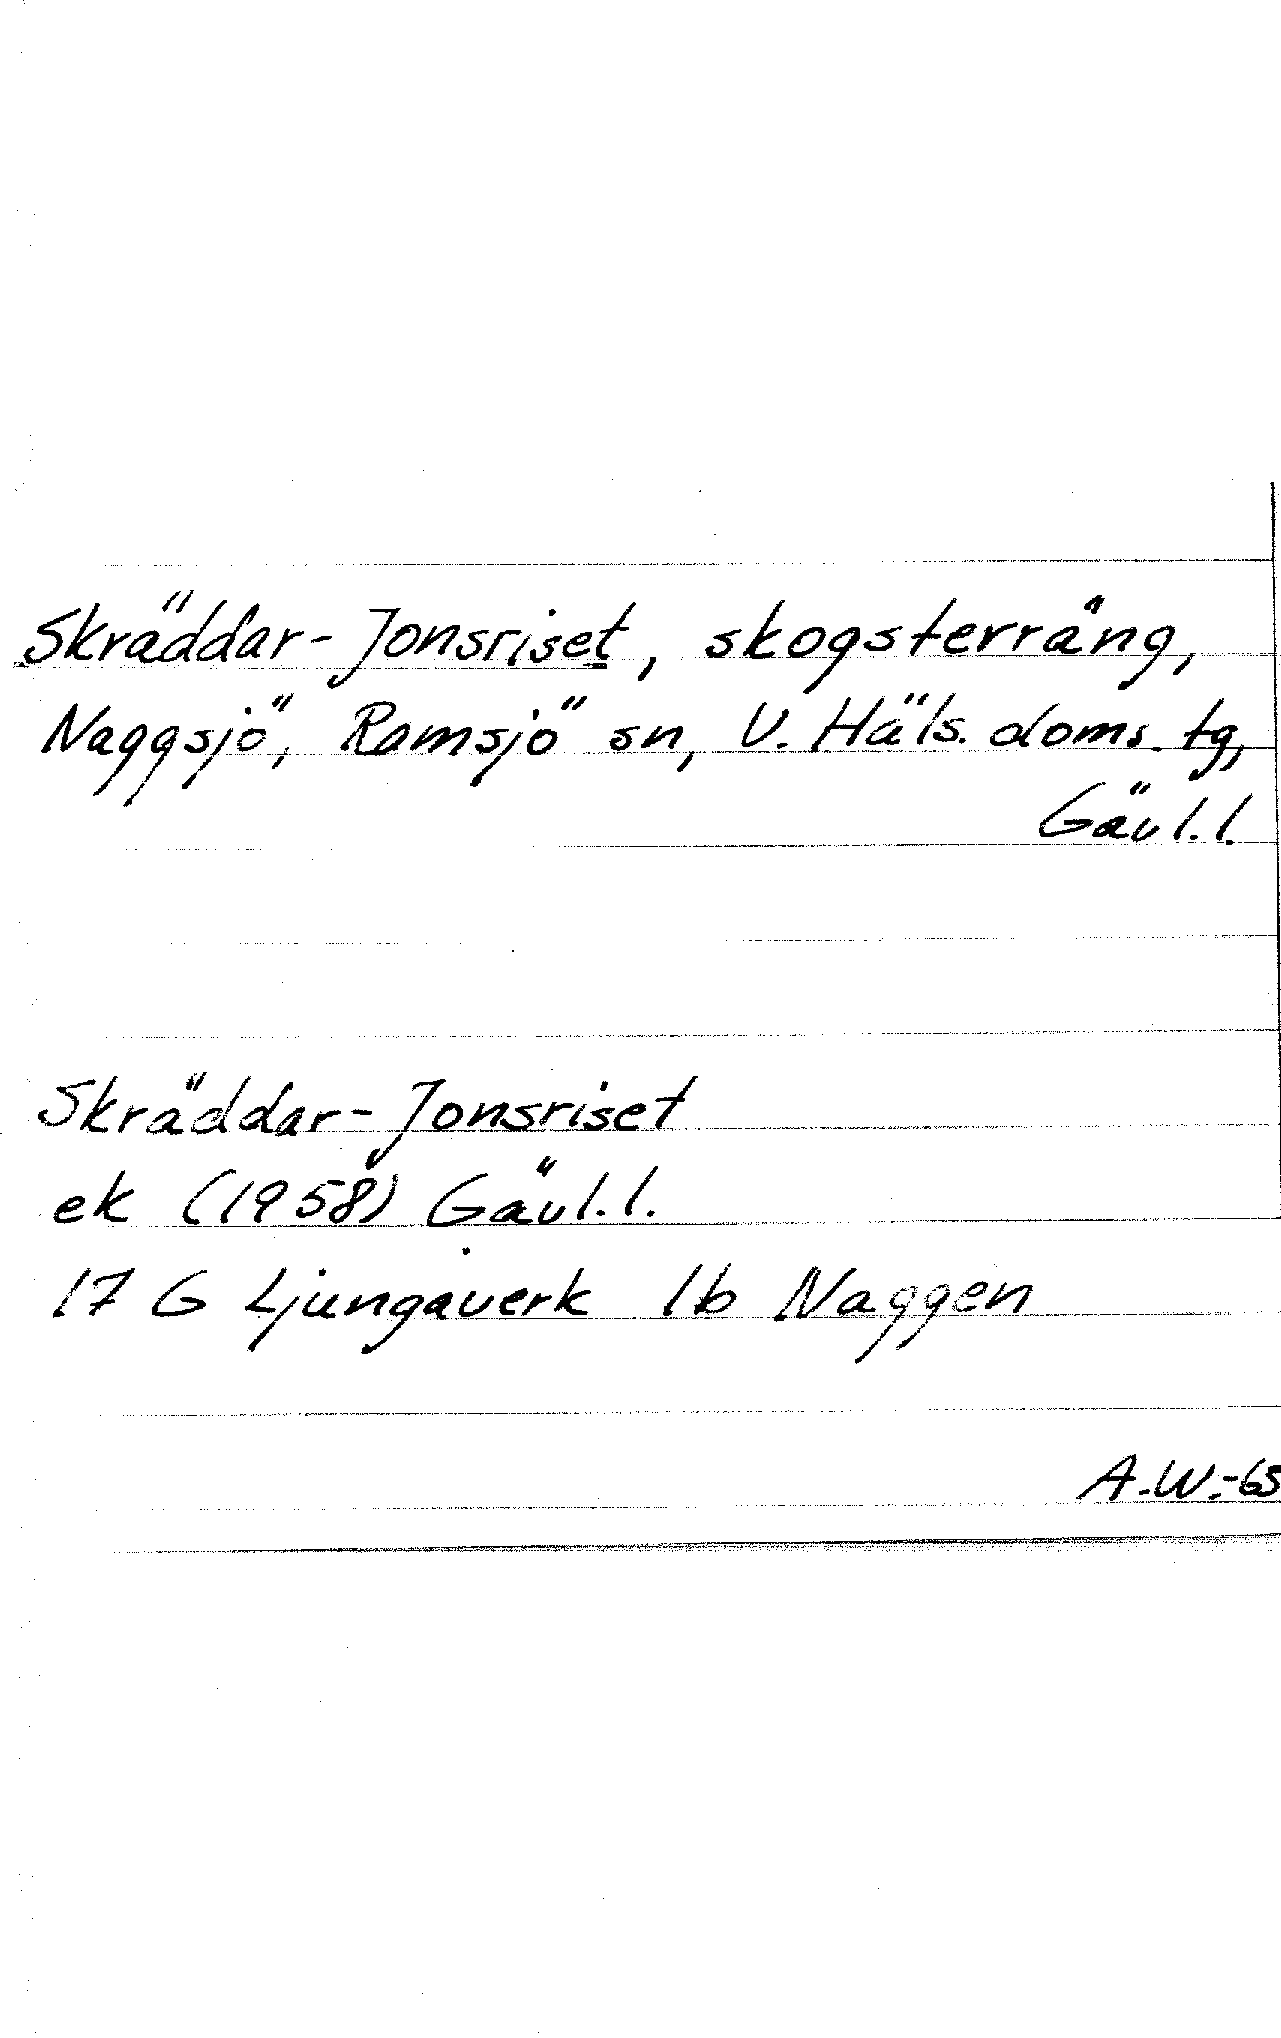 Skräddar-Jonsriset, skogsterräng,
Naggsjö, Ramsjö sn, V. Häls. doms. tg,
Gävl.l.
Skräddar-Jonsriset
ek (1958) Gävl.l.
17 G Ljungaverk 1b Naggen
A.W.-65